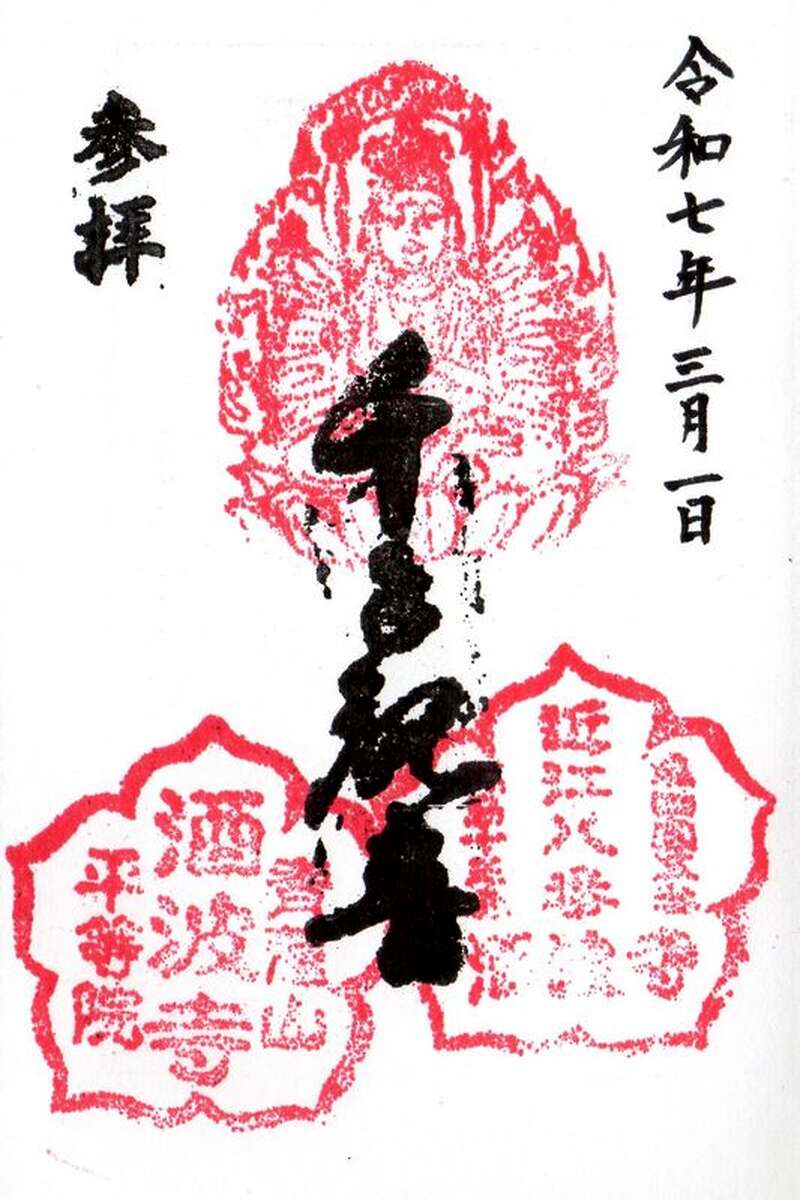 令和七年三月一日
千手観音
参拝
近江八
寺
酒波寺
平等院